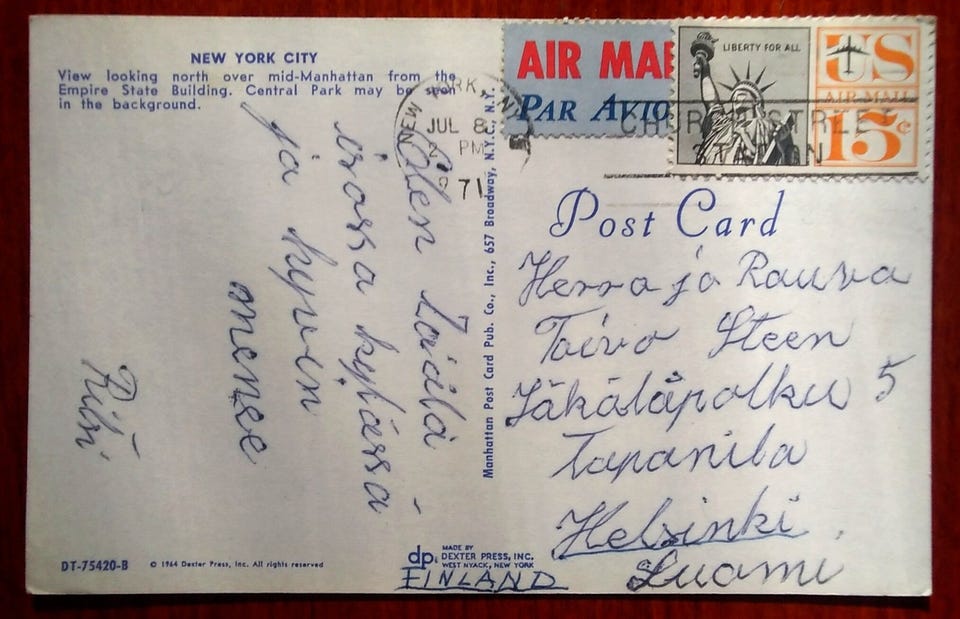 NEW YORK CITY
View looking north over mid-Manhattan from the
Empire State Building. Central Park may be seen
in the background.
Olen täällä
isossa kylässä
ja hyvin
menee
DT-75420-B
© 1964 Dexter Press, Inc. All rights reserved
dp
MADE BY
DEXTER PRESS, INC.
WEST NYACK, NEW YORK
FINLAND
Manhattan Post Card Pub. Co., Inc., 657 Broadway, N.Y.C., N.Y.
NEW YORK, N.Y.
JUL 8
PM
1971
CHURCH STREET
STATION
AIR MAI
PAR AVIO
LIBERTY FOR ALL
US
AIR MAIL
15c
Post Card
Herra ja Rouva
Toivo Steen
Jäkäläpolku 5
Tapanila
Helsinki
Suomi